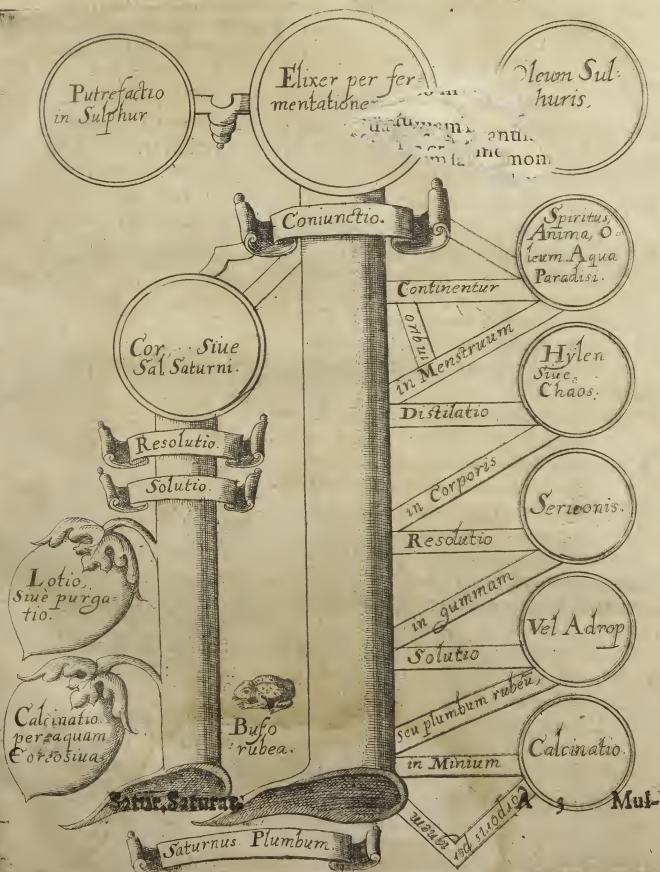 Putrefactio
in Sulphur
Elixer per fer-
mentatione
Oleum Sul-
huris,
antim
mon
Coniunctio.
Spiritus,
Anima, O-
leum Aqua
Paradisi.
Continentur
oribui
in Menstruum
Cor Siue
Sal Saturni.
Hylen
Siue,
Chaos.
Distilatio
Resolutio.
Solutio.
in Corporis
Sericonis.
Resolutio
in gummam
Lotio,
Siuè purga-
tio.
Vel Adrop
Solutio
seu plumbum rubeū,
Calcinatio
per aquam
Corosiua
Bufo
rubea.
Calcinatio.
in Minium
Corporis per
ignem
Satur, Saturat:
A 3 Mul-
Saturnus Plumbum.